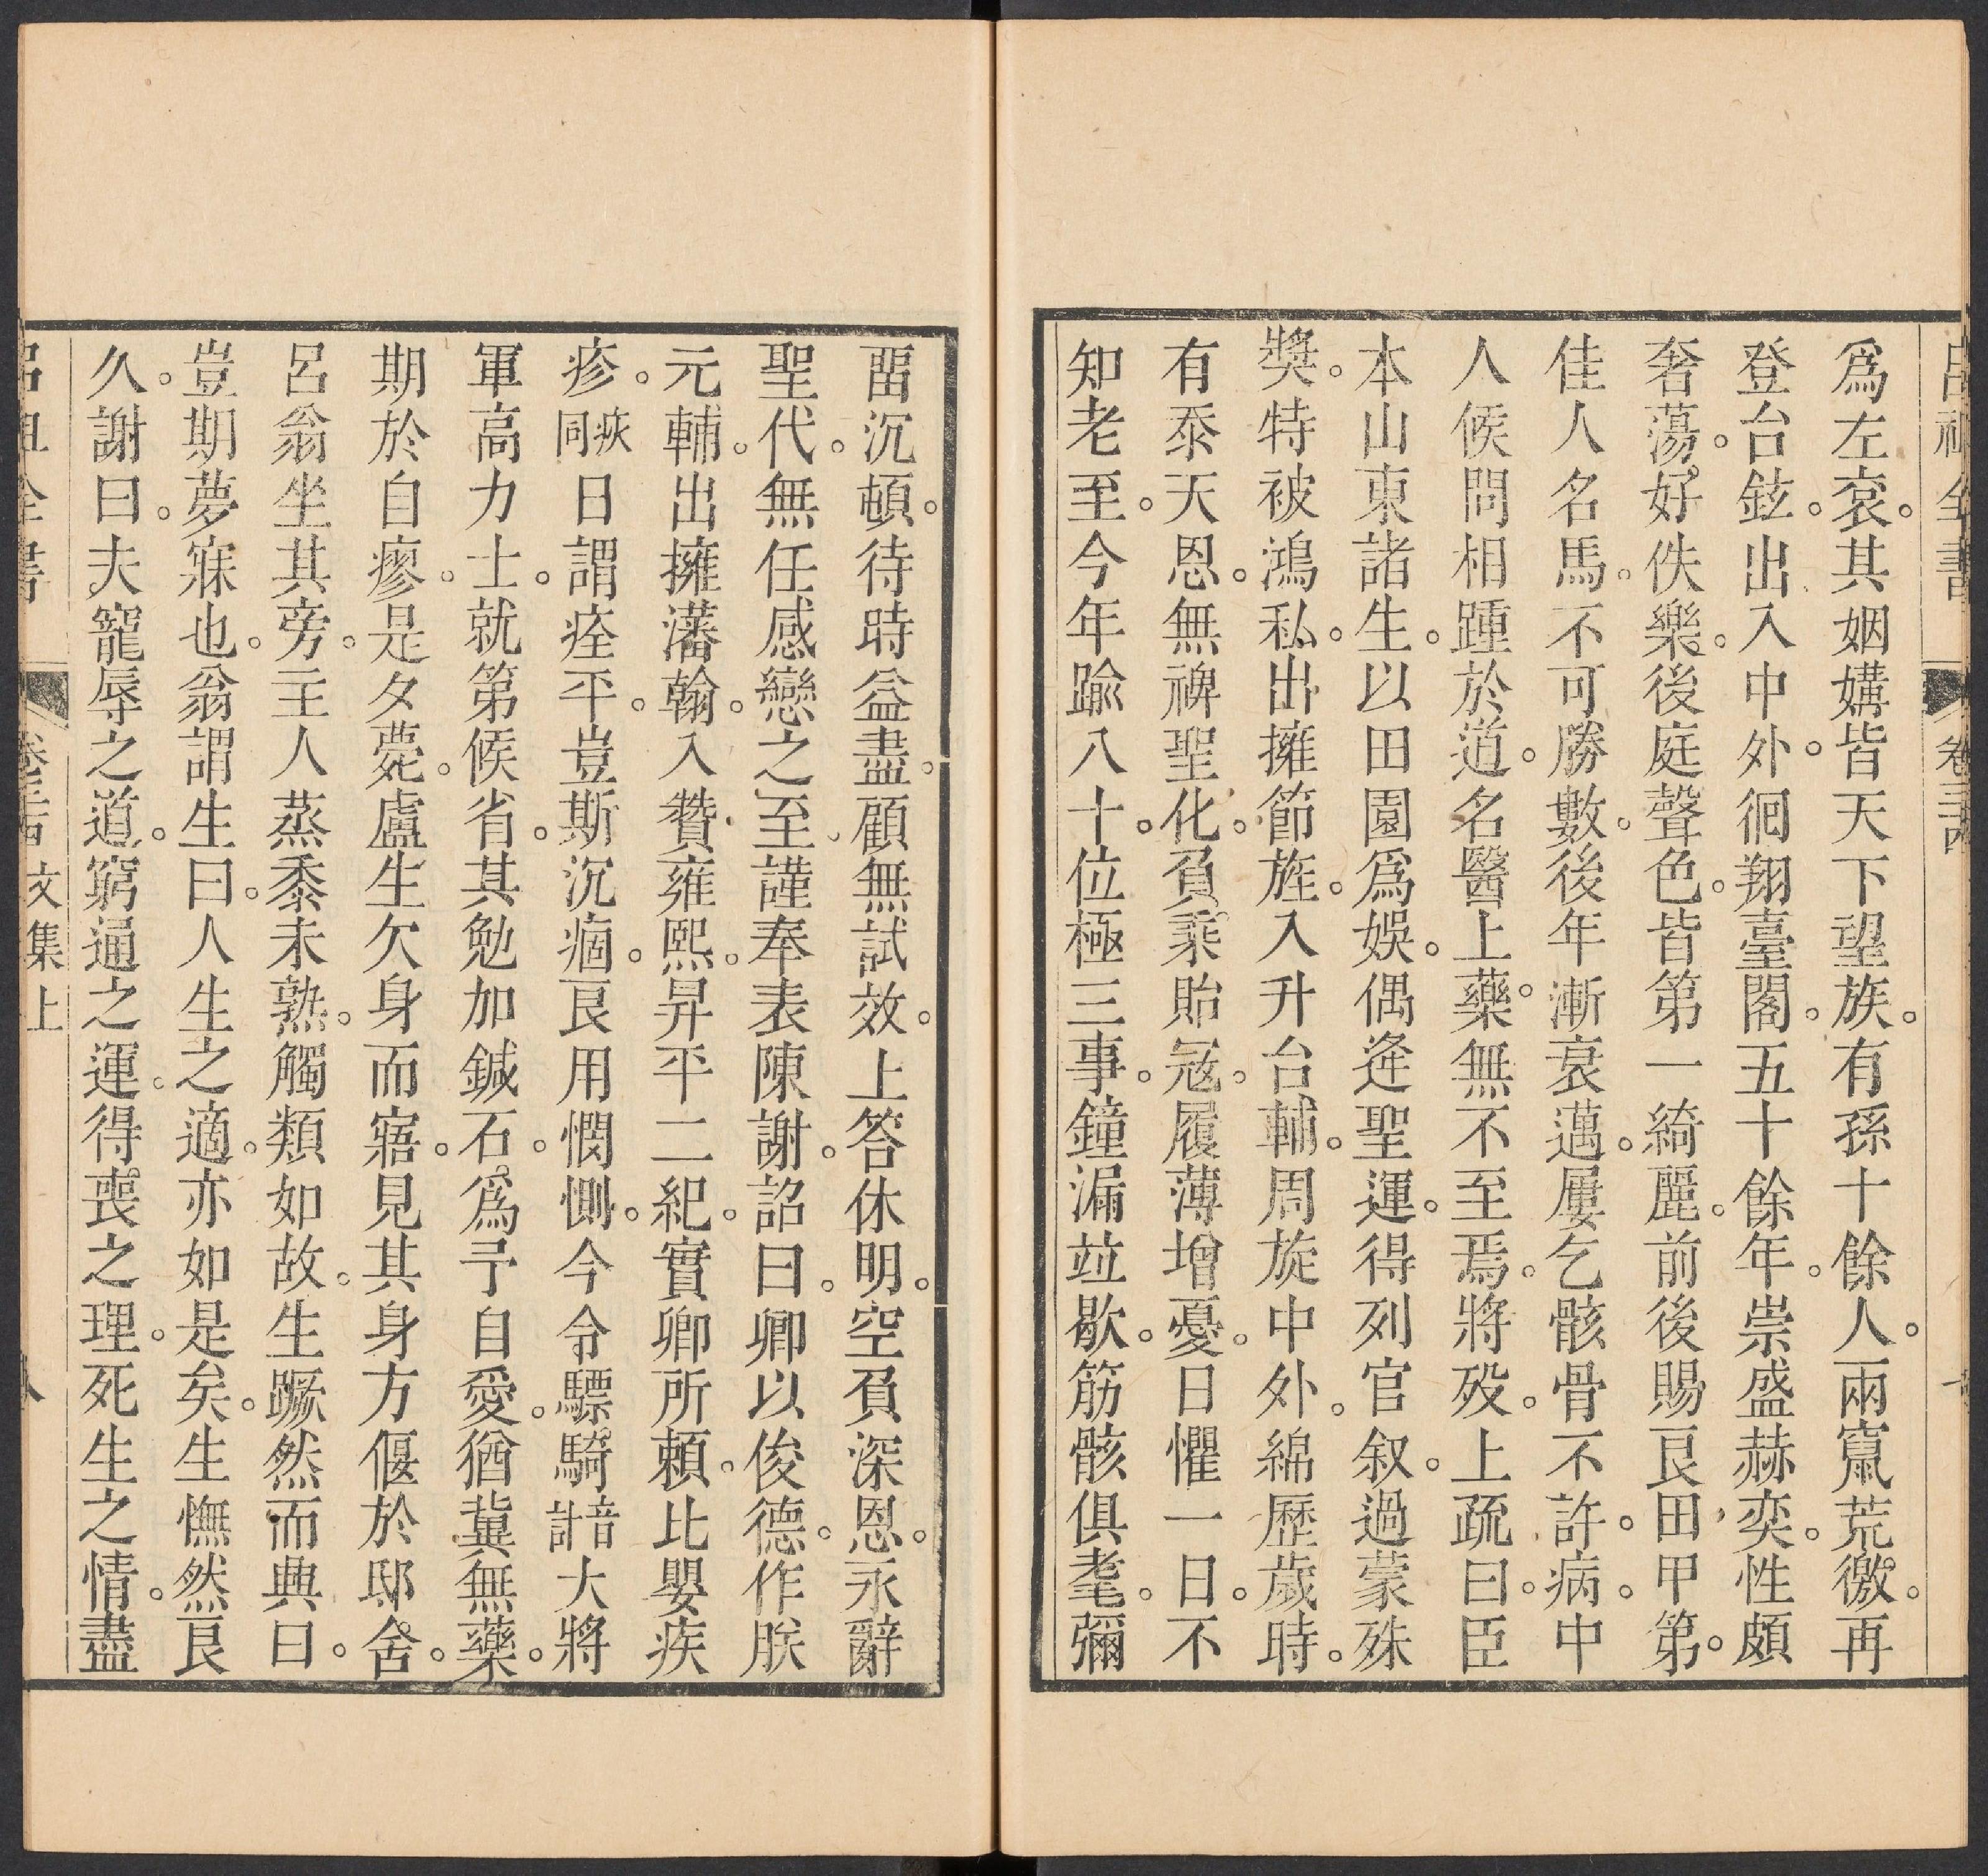 呂祖全書 卷三十四
爲左衮。其姻媾皆天下望族。有孫十餘人。兩竄荒徼。再
登台鉉。出入中外。徊翔臺閣。五十餘年。崇盛赫奕。性頗
奢蕩。好佚樂。後庭聲色。皆第一綺麗。前後賜良田甲第。
佳人名馬。不可勝數。後年漸衰邁。屢乞骸骨不許。病。中
人候問相踵於道。名醫上藥。無不至焉。將殁。上疏曰。臣
本山東諸生。以田園爲娛。偶逄聖運。得列官叙。過蒙殊
獎。特被鴻私。出擁節旌。入升台輔。周旋中外。綿歷歲時。
有忝天恩。無裨聖化。負乘貽寇。履薄增憂。日懼一日。不
知老至。今年踰八十。位極三事。鐘漏竝歇。筋骸俱耄。彌
畱沉頓。待時益盡。顧無試效。上答休明。空負深恩。永辭
聖代。無任感戀之至。謹奉表陳謝。詔曰。卿以俊德。作朕
元輔。出擁藩翰。入贊雍熙。昇平二紀。實卿所賴。比嬰疾
疹。疢同日謂痊平。豈斯沉痼。良用憫惻。今令驃騎音計大將
軍高力士。就第候省。其勉加鍼石。爲予自愛。猶冀無藥。
期於自瘳。是夕薨。盧生欠身而寤。見其身方偃於邸舍。
呂翁坐其旁。主人蒸黍未熟。觸類如故。生蹶然而興曰。
豈期夢寐也。翁謂生曰。人生之適。亦如是矣。生憮然良
久。謝曰。夫寵辱之道。窮通之運。得喪之理。死生之情。盡
呂祖全書 卷三十四 文集上 八